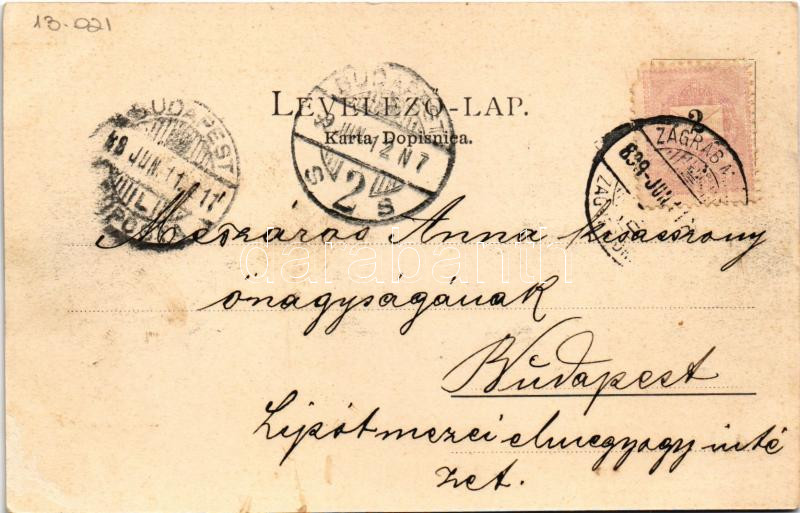 13-021
LEVELEZŐ-LAP.
Karta Dopisnica.
BUDAPEST
JUN. 11
BUDAPEST
JUN. 12 N 7
2
ZÁGRÁB
899 JUN. 11
2
Mészáros Anna kisasszony
őnagyságának
Budapest
Lipótmezei elmegyógyinté
zet.
darabanth